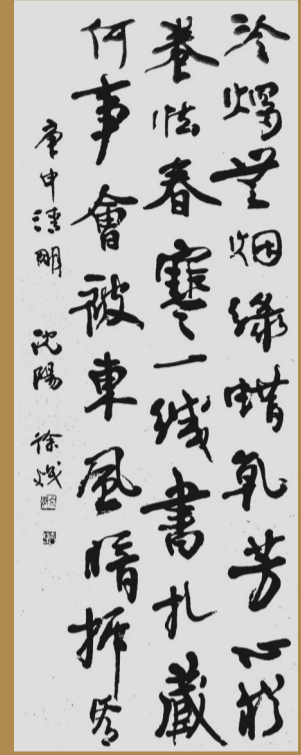 冷燭無烟綠蜡乾芳心猶
卷怯春寒一緘書扎藏
何事會被東風暗拆看
唐中清明 沈陽 徐熾